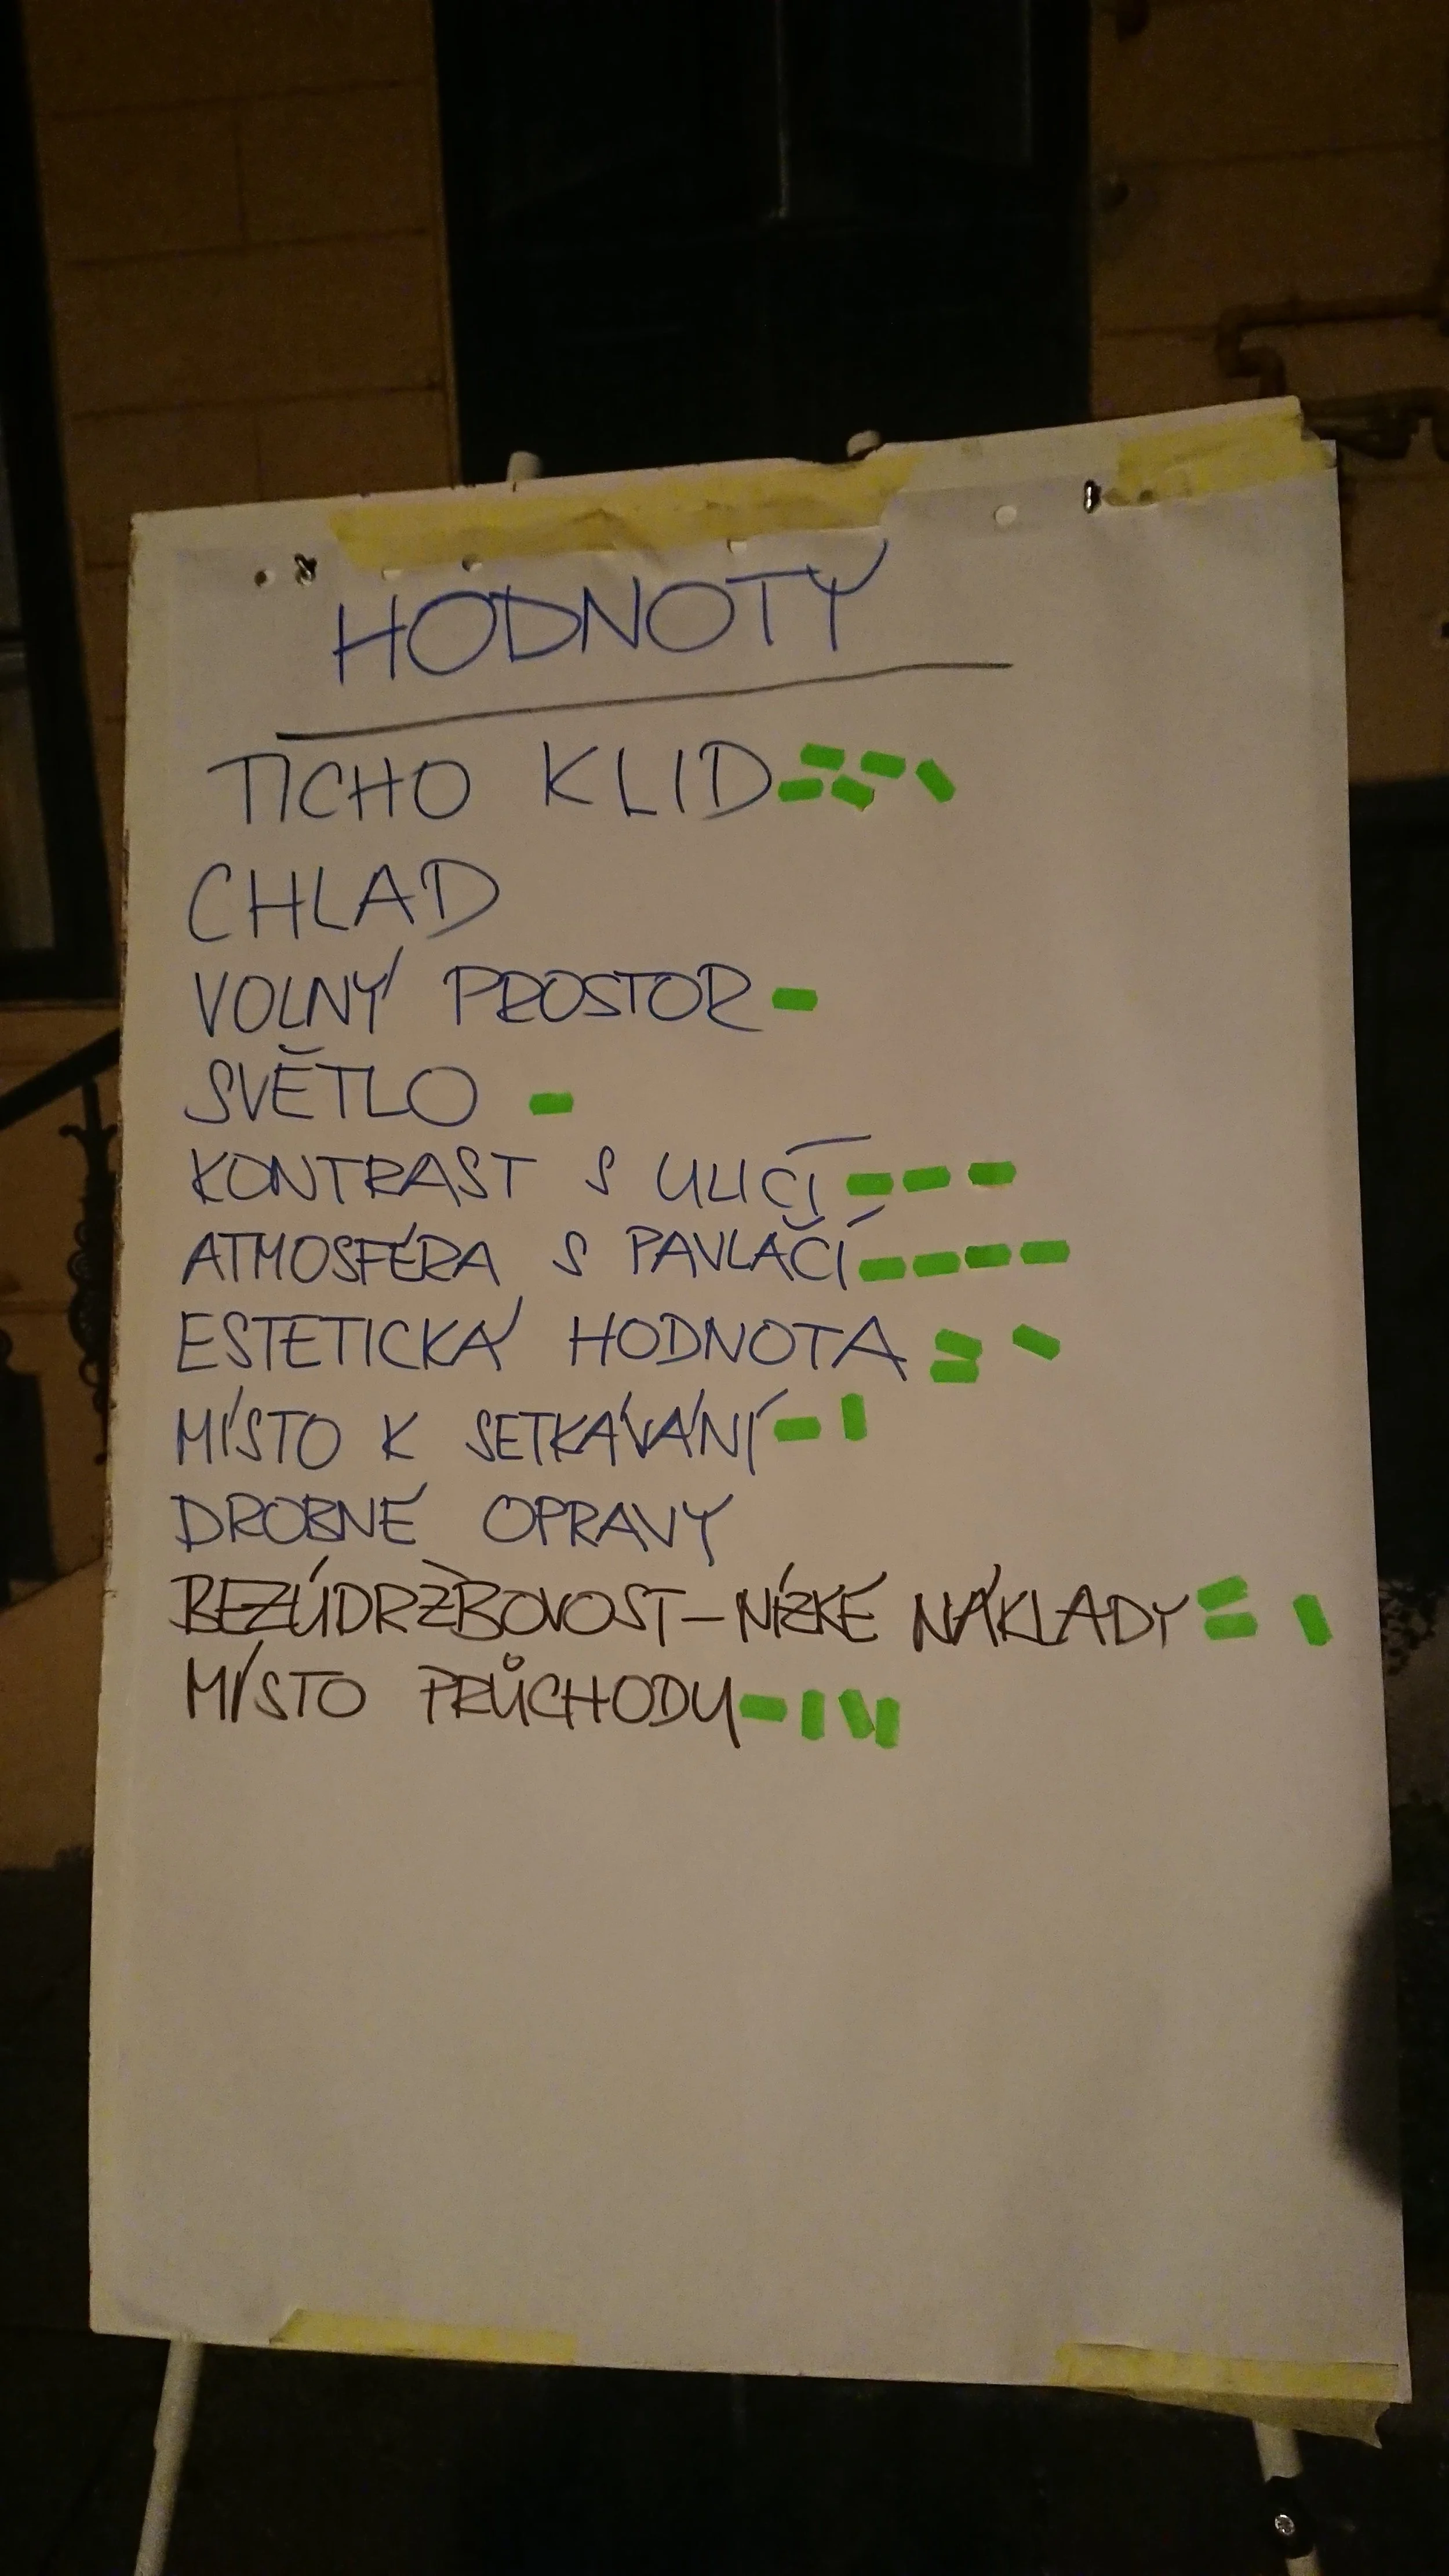 HODNOTY
TICHO KLID
CHLAD
VOLNÝ PROSTOR
SVĚTLO
KONTRAST S ULICÍ
ATMOSFÉRA S PAVLAČÍ
ESTETICKÁ HODNOTA
MÍSTO K SETKÁVÁNÍ
DROBNÉ OPRAVY
BEZÚDRŽBOVOST – NÍZKÉ NÁKLADY
MÍSTO PRŮCHODU